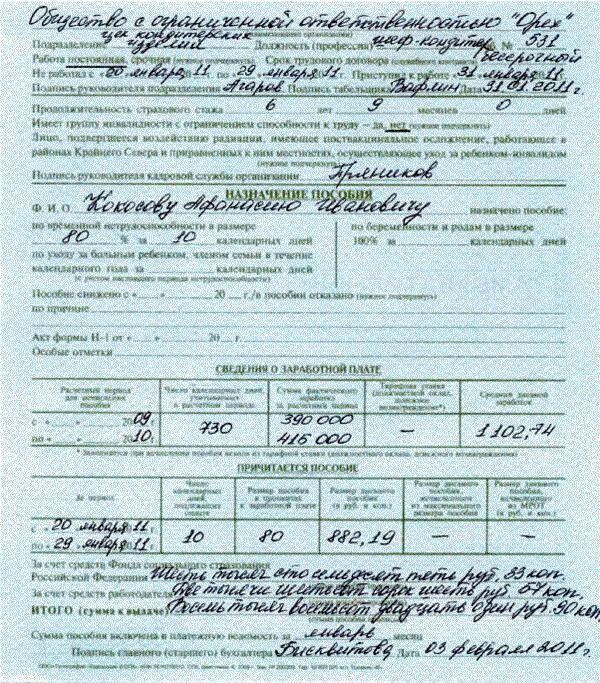 Общество с ограниченной ответственностью "Орех"
цех кондитерских шеф-кондитер
Подразделение изделий Должность (профессия) № 531
Работа постоянная, срочная Срок трудового договора бессрочный
Не работал с «20» января 2011 г. по «29» января 2011 г. Приступил к работе 31 января 2011
Подпись руководителя подразделения Агаров Подпись табельщика Вафлин Дата 31.01.2011 г.
Продолжительность страхового стажа 6 лет 9 месяцев 0 дней
Имеет группу инвалидности с ограничением способности к труду – да, нет (нужное подчеркнуть)
Лицо, подвергшееся воздействию радиации, имеющее поствакцинальное осложнение, работающее в
районах Крайнего Севера и приравненных к ним местностях, осуществляющее уход за ребенком-инвалидом
(нужное подчеркнуть)
Подпись руководителя кадровой службы организации Пряников
НАЗНАЧЕНИЕ ПОСОБИЯ
Ф. И. О. Кокосову Афанасию Ивановичу назначено пособие:
по временной нетрудоспособности в размере по беременности и родам в размере
80 % за 10 календарных дней 100% за календарных дней
по уходу за больным ребенком, членом семьи в течение
календарного года за календарных дней
(с учетом настоящего периода нетрудоспособности)
Пособие снижено с « » 20 г./в пособии отказано (нужное подчеркнуть)
по причине
Акт формы Н-1 от « » 20 г.
Особые отметки
СВЕДЕНИЯ О ЗАРАБОТНОЙ ПЛАТЕ
Расчетный период для исчисления пособия Число календарных дней, учитываемых в расчетном периоде Сумма фактического заработка за расчетный период Тарифная ставка (должностной оклад, денежное вознаграждение)* Средний дневной заработок
с « » 2009 г. 730 390 000 – 1102,74
по « » 2010 г. 415 000
* Заполняется при исчислении пособия исходя из тарифной ставки (должностного оклада, денежного вознаграждения)
ПРИЧИТАЕТСЯ ПОСОБИЕ
За период Число календарных дней, подлежащих оплате Размер пособия в процентах к заработной плате Размер дневного пособия (в руб. и коп.) Размер дневного пособия, исчисленного из максимального размера пособия Размер дневного пособия, исчисленного из МРОТ (в руб. и коп.)
с «20» января 2011 г. 10 80 882,19 – –
по «29» января 2011 г.
За счет средств Фонда социального страхования
Российской Федерации Шесть тысяч сто семьдесят пять руб. 33 коп.
За счет средств работодателя Две тысячи шестьсот сорок шесть руб. 57 коп.
ИТОГО (сумма к выдаче) Восемь тысяч восемьсот двадцать один руб. 90 коп.
Сумма пособия включена в платежную ведомость за январь месяц
Подпись главного (старшего) бухгалтера Бисквитова Дата 03 февраля 2011 г.